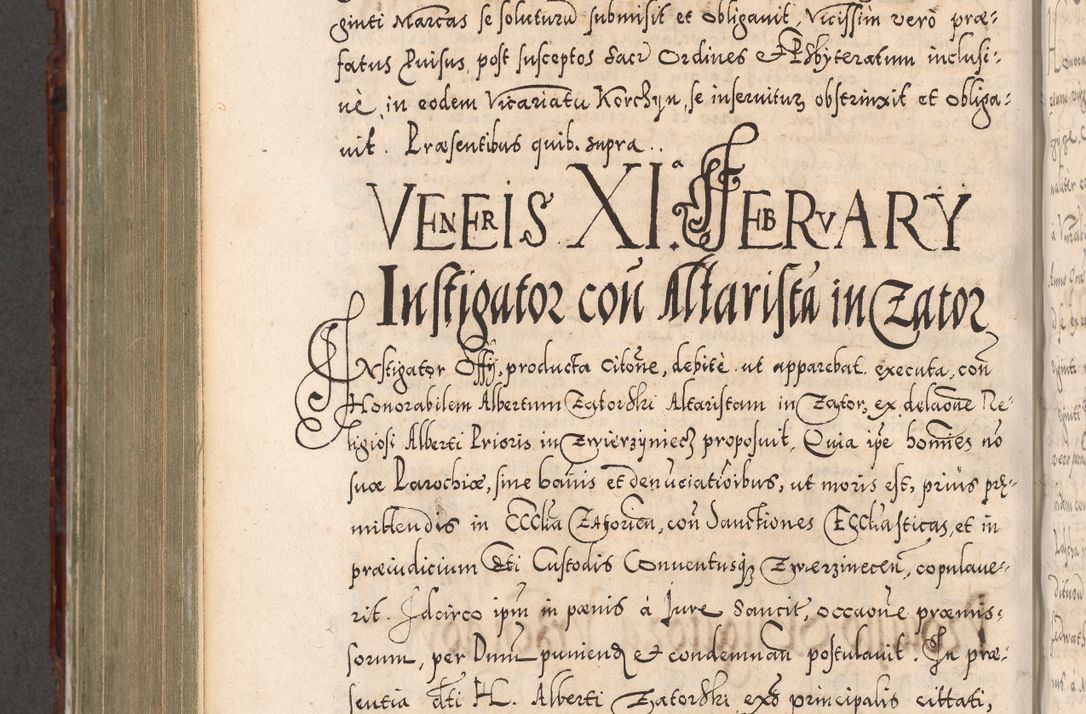 ginti Marcas se soluturũ submisit et obligauit, Vicissim verò præ-
fatus Ruisus, post susceptos Sacr Ordines et Pr̃sbyteratum inclusi-
uè, in eodem Vicariatu Korchyn, se inseruiturũ obstrinxit et obliga-
uit. Præsentibus quib. supra..
VENERIS XI.ª FFEBRVARY
Instigator coñ Altaristã in Zator
Instigator Offÿ, producta Citoñe, debitè ut apparebat executa, coñ
Honorabilem Albertum Zatorski Altaristam in Zator, ex delaõne Re-
ligiosi Alberti Prioris in Zwierzyniecz proposuit, Quia ipe homĩes nõ
suæ Parochiæ, sine bañis et denũciatiõibus, ut moris est, priùs præ-
mittendis in Ecclĩa Zatorien, coñ Sanctiones Ecclĩasticas, et in
præiudicium dti Custodis Conuentusq Zwierzinecen, copulaue-
rit. Idcirco ipm̃ in pænis à Jure Sancit, occaõne præmis-
sorum, per Dnum puniend et condemnañ postulauit. In præ-
sentia dti H. Alberti Zatorski exs principalis cittati,